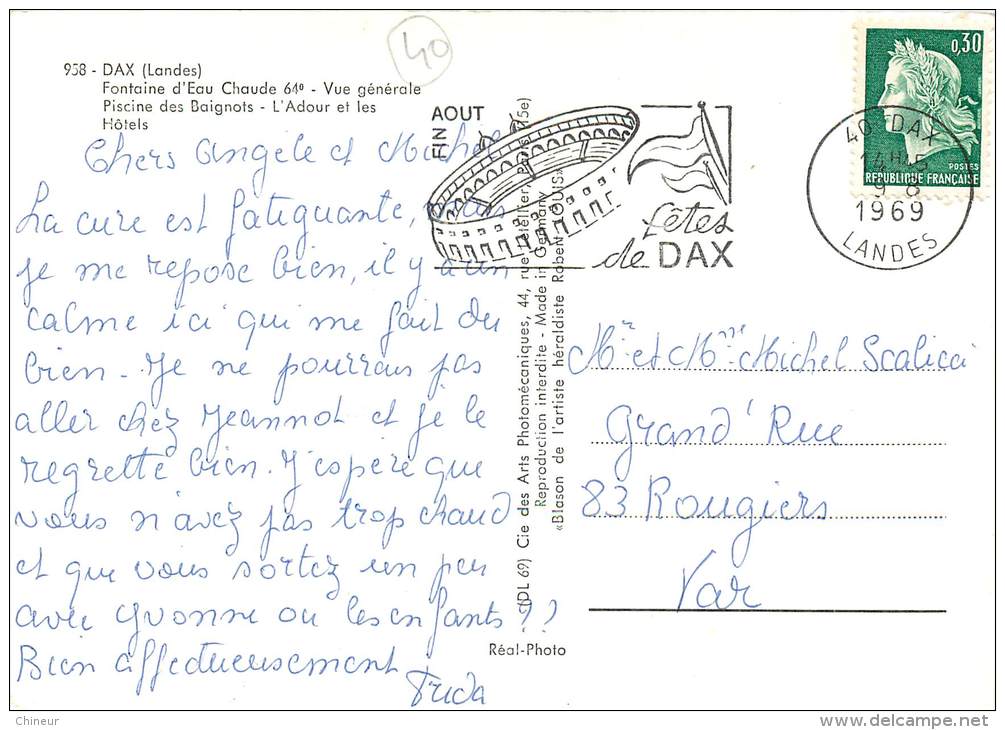 40
958 - DAX (Landes)
Fontaine d'Eau Chaude 64º - Vue générale
Piscine des Baignots - L'Adour et les
Hôtels
Chers Angèle et Michel
La cure est fatiguante, mais
je me repose bien, il y a un
calme ici qui me fait du
bien - Je ne pourrais pas
aller chez Jeannot et je le
regrette bien. J'espère que
vous n'avez pas trop chaud
et que vous sortez un peu
avec Yvonne ou les enfants ??
Bien affectueusement
Frida
FIN AOUT
fêtes
de DAX
(DL 69) Cie des Arts Photomécaniques, 44, rue Letellier, Paris (15e)
Reproduction interdite - Made in Germany
«Blason de l'artiste héraldiste Robert LOUIS»
Réal-Photo
0,30
POSTES
REPUBLIQUE FRANÇAISE
40 DAX
14H15
9 - 8
1969
LANDES
Mr et Mme Michel Scalicci
Grand'Rue
83 Rougiers
Var
Chineur
delcampe.net